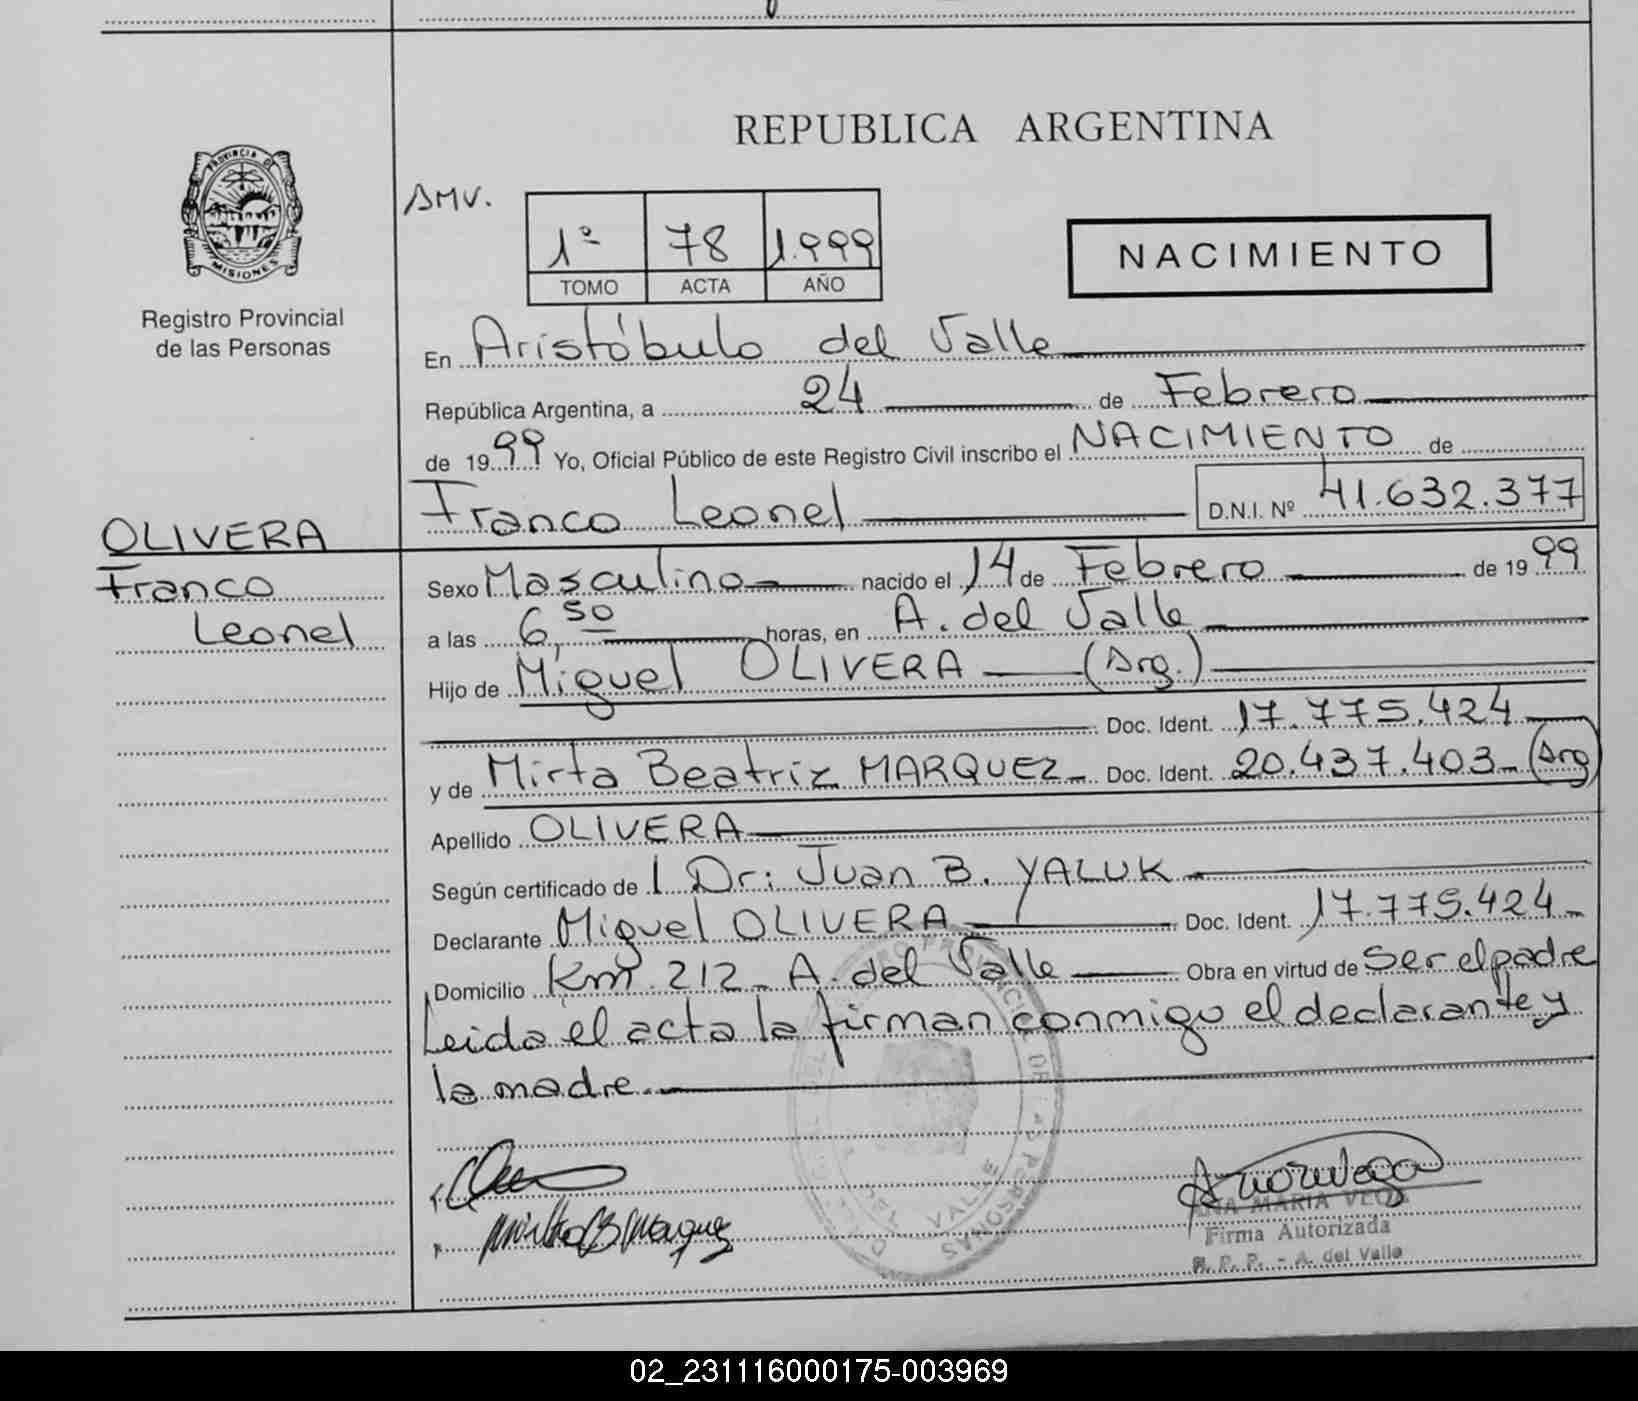 REPUBLICA ARGENTINA
PROVINCIA D
MISIONES
Registro Provincial
de las Personas
AMV.
1º 78 1.999
TOMO ACTA AÑO
NACIMIENTO
En Aristóbulo del Valle
República Argentina, a 24 de Febrero
de 1999 Yo, Oficial Público de este Registro Civil inscribo el NACIMIENTO de
Franco Leonel D.N.I. Nº 41.632.377
OLIVERA
Franco
Leonel
Sexo Masculino nacido el 14 de Febrero de 1999
a las 6,50 horas, en A. del Valle
Hijo de Miguel OLIVERA (Arg.)
Doc. Ident. 17.775.424
y de Mirta Beatriz MARQUEZ Doc. Ident. 20.437.403 (Arg)
Apellido OLIVERA
Según certificado de l Dr: Juan B. YALUK
Declarante Miguel OLIVERA Doc. Ident. 17.775.424
Domicilio Km 212 A. del Valle Obra en virtud de ser el padre
Leida el acta la firman conmigo el declarante y
la madre.
Mirta B Marquez
ANA MARIA VEGA
Firma Autorizada
R. P. P. - A. del Valle
02_231116000175-003969